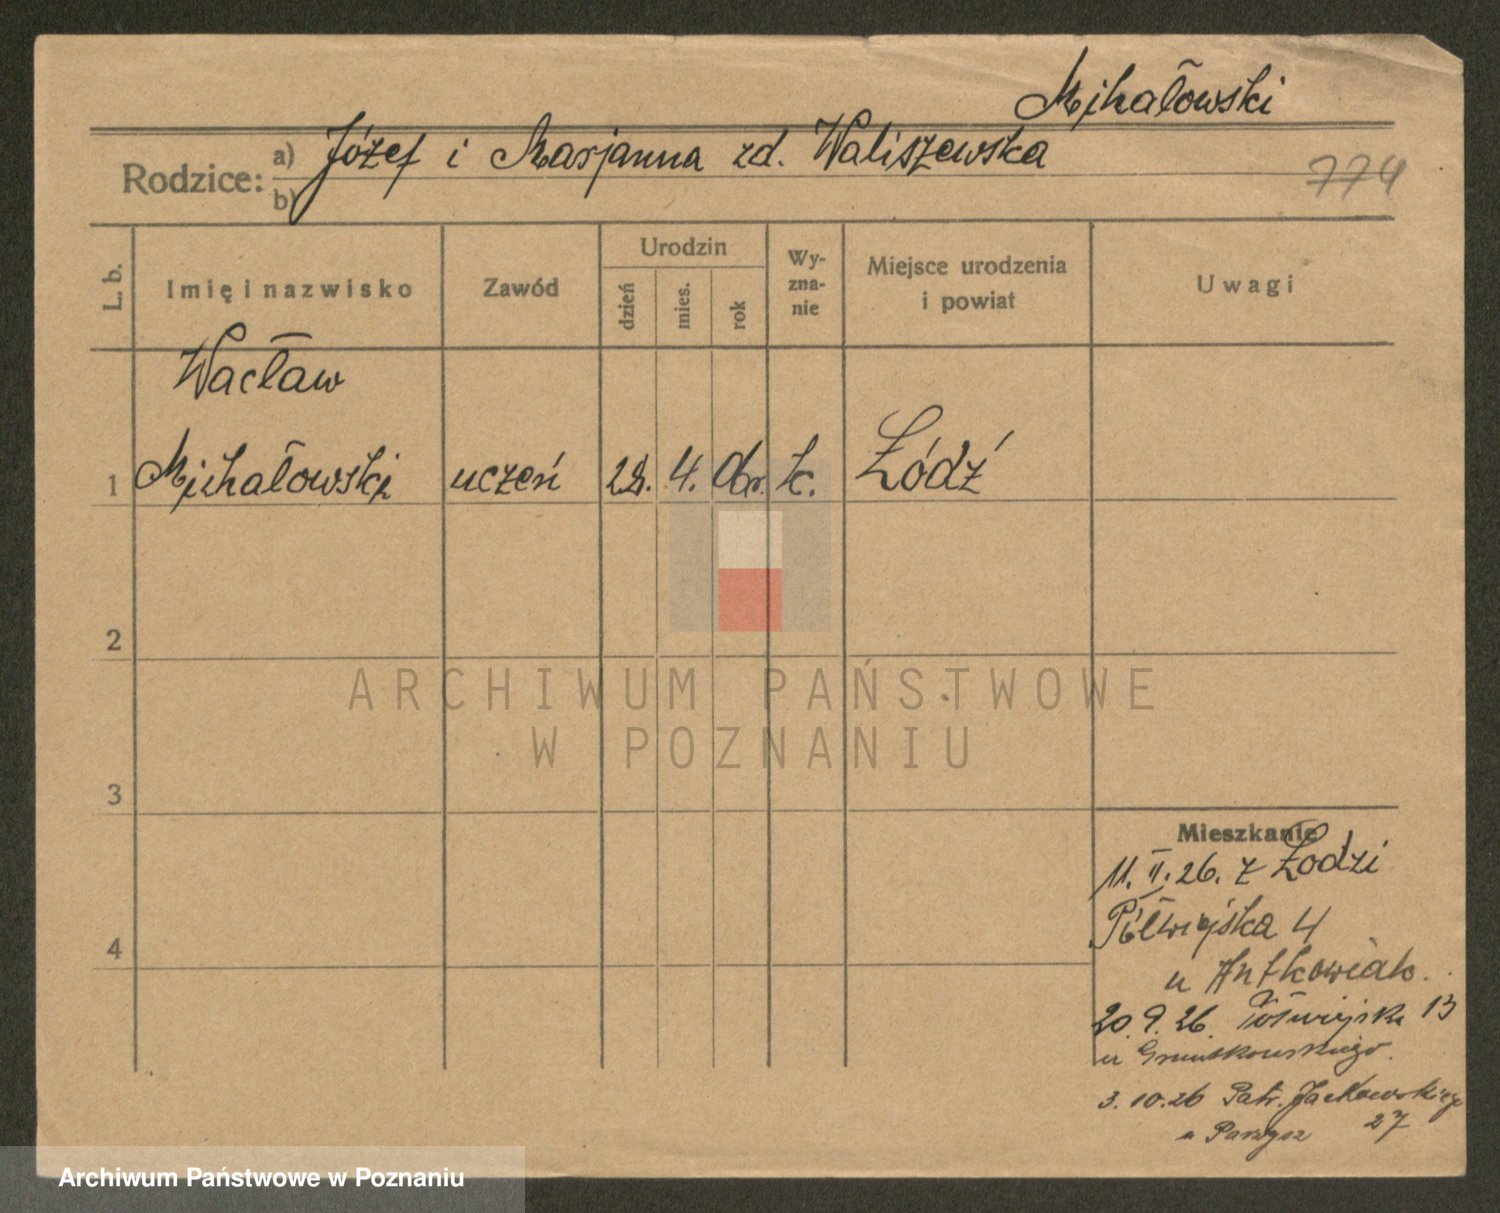 Mihałowski
Rodzice: a) Józef i Marjanna zd. Waliszewska
b)
774
L. b.
Imię i nazwisko
Zawód
Urodzin
dzień
mies.
rok
Wy-
zna-
nie
Miejsce urodzenia
i powiat
Uwagi
Wacław
1 Mihałowski uczeń 28. 4. k. Łódź
2
ARCHIWUM PAŃSTWOWE
W POZNANIU
3
Mieszkanie
11. II. 26. z Łodzi
Półwiejska 4
4
u Antkowiak.
20. 9. 26. Półwiejska 13
u
3. 10. 26 Patr. Jackowskiego
27
u
Archiwum Państwowe w Poznaniu